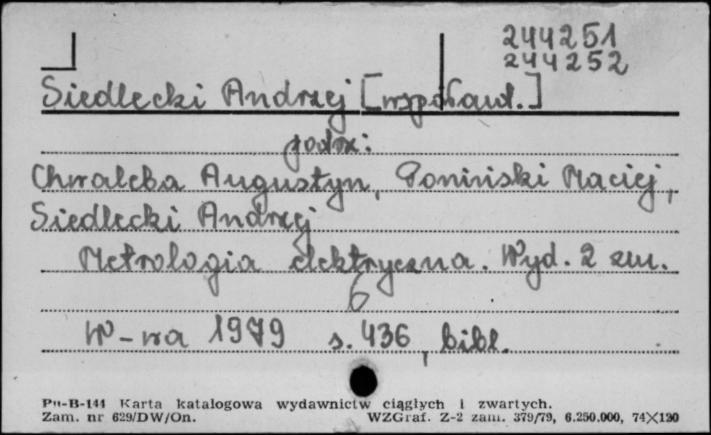 244251
244252
Siedlecki Andrzej [współaut.]
podx:
Chwaleba Augustyn, Poniński Maciej,
Siedlecki Andrzej
Metrologia elektryczna. Wyd. 2 zm.
6
W-wa 1979 s. 436, bibl.
Pu-B-144 Karta katalogowa wydawnictw ciągłych i zwartych.
Zam. nr 629/DW/On. WZGraf. Z-2 zam. 379/79, 6.250.000, 74×120